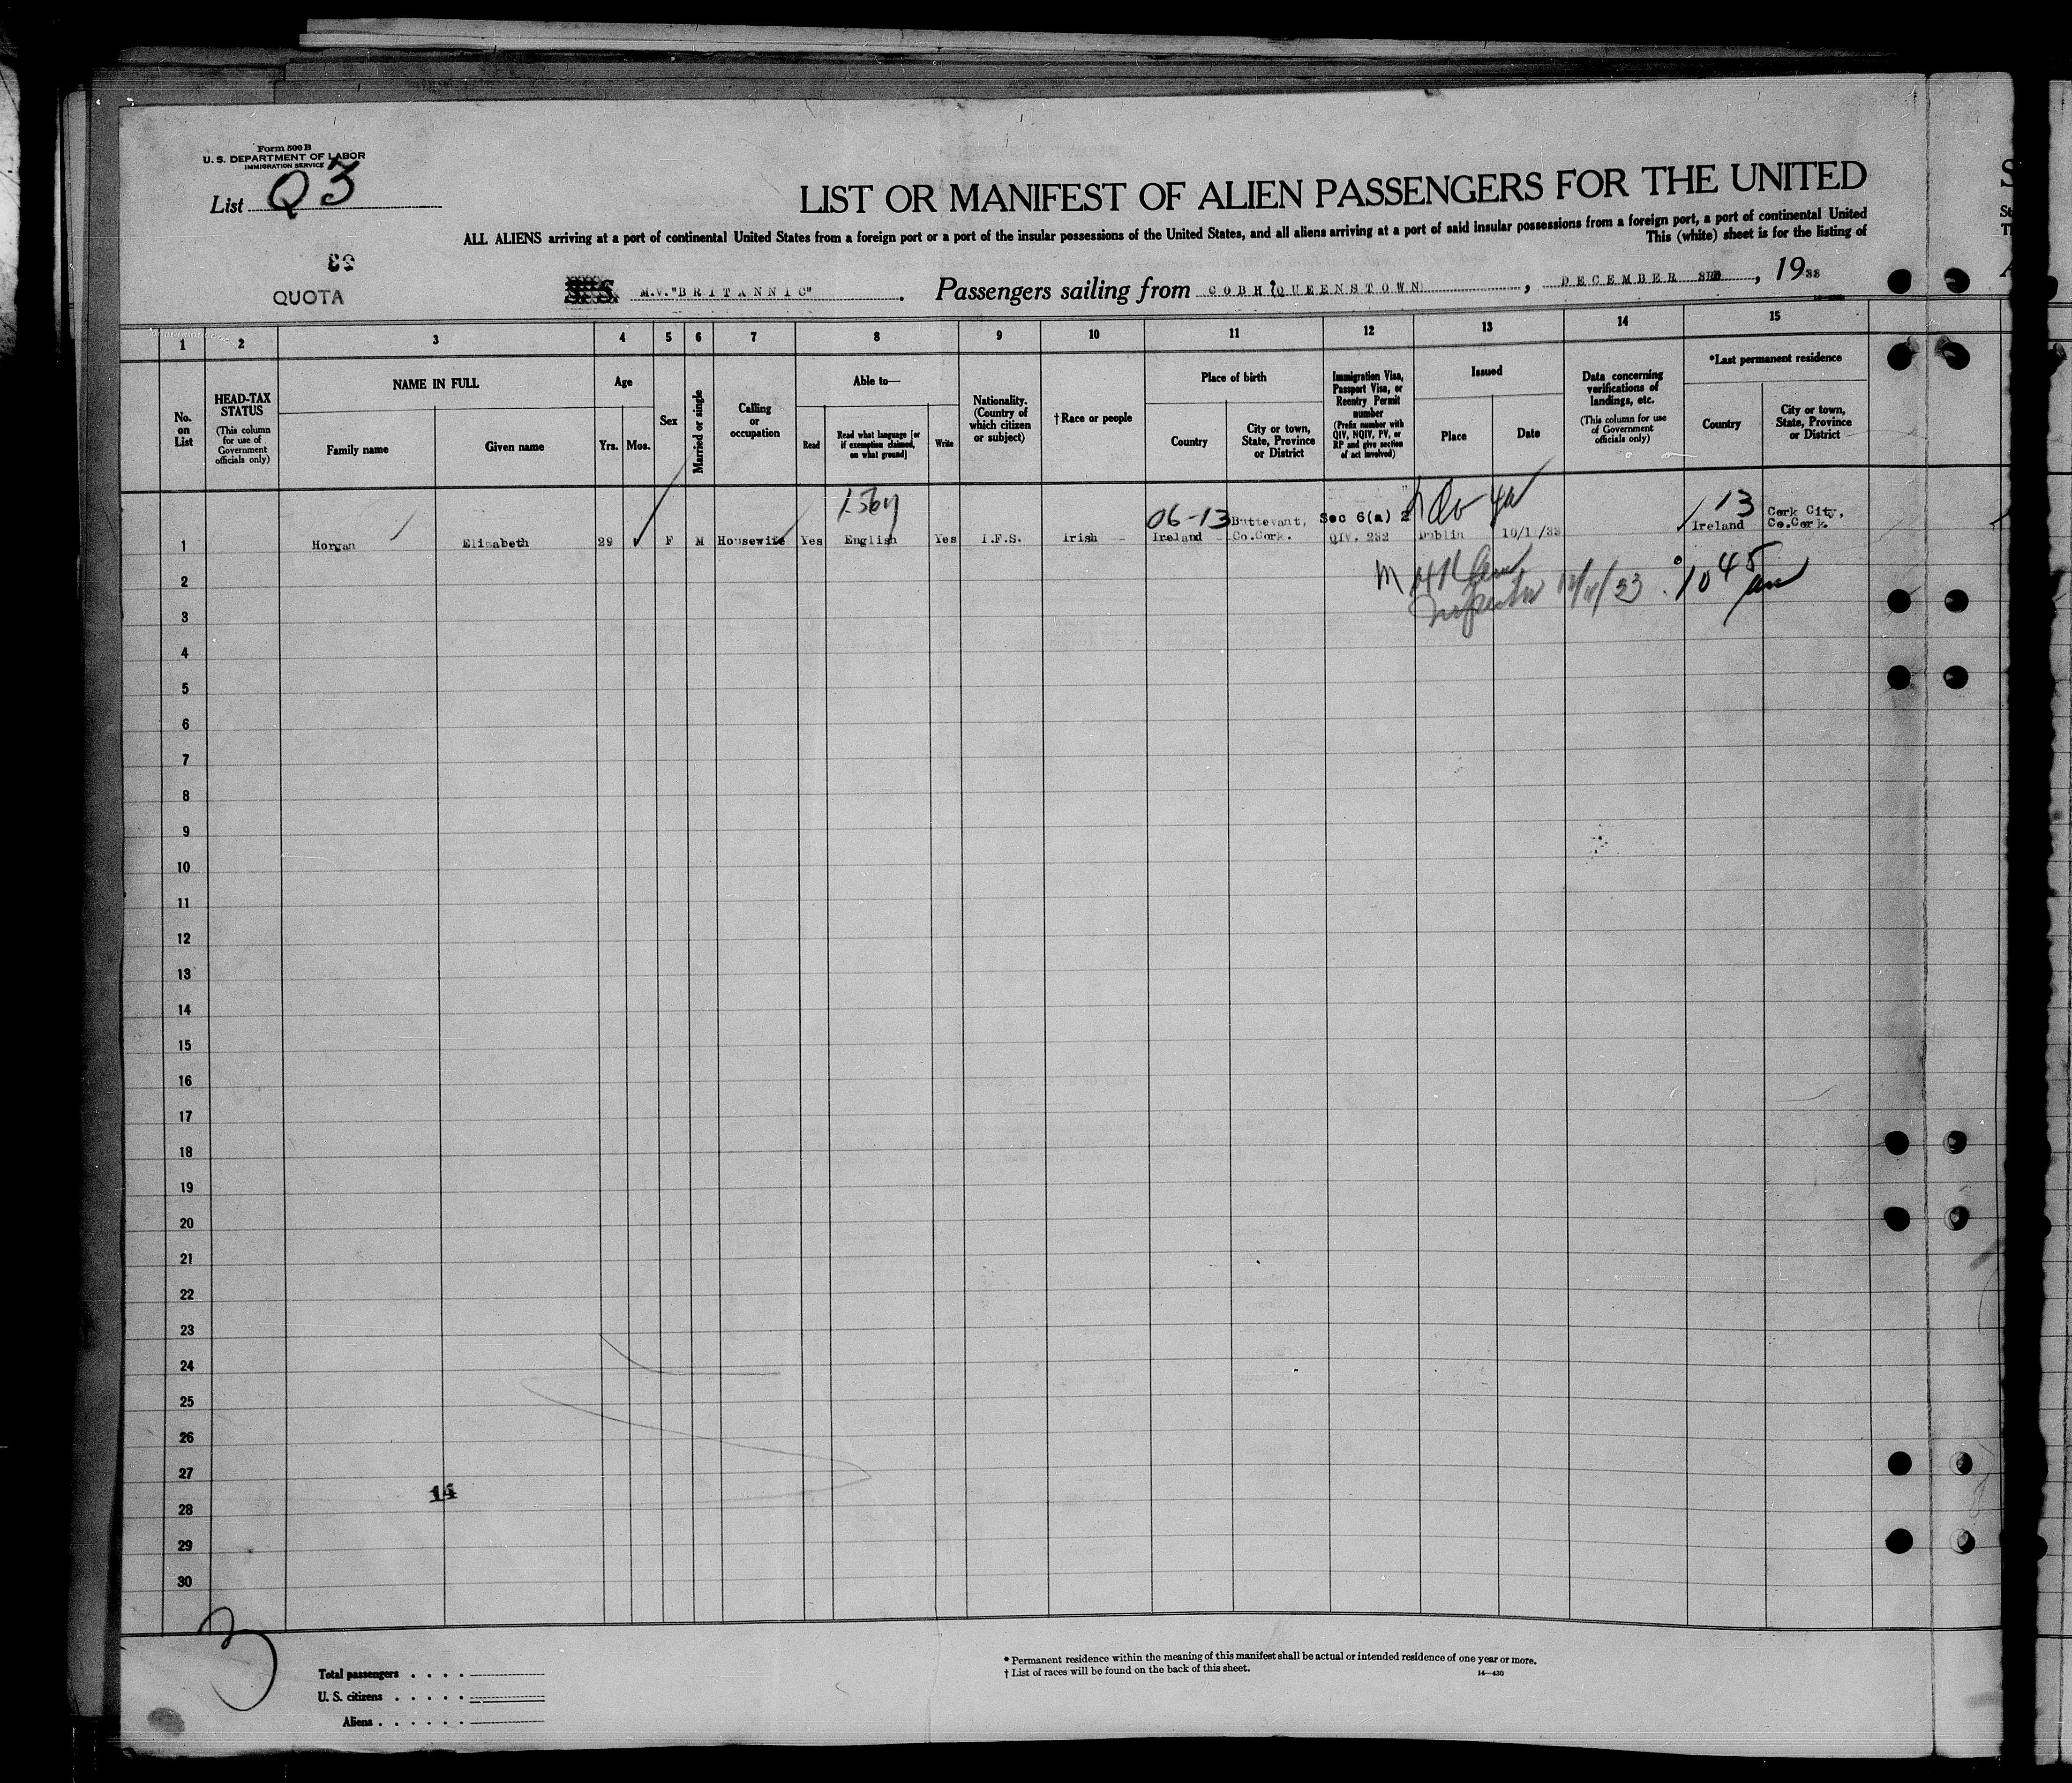 Form 500 B
U. S. DEPARTMENT OF LABOR
IMMIGRATION SERVICE
List Q3
LIST OR MANIFEST OF ALIEN PASSENGERS FOR THE UNITED
ALL ALIENS arriving at a port of continental United States from a foreign port or a port of the insular possessions of the United States, and all aliens arriving at a port of said insular possessions from a foreign port, a port of continental United
This (white) sheet is for the listing of
QUOTA
S. S. M.V."BRITANNIC" . Passengers sailing from COBH(QUEENSTOWN) , DECEMBER 3RD , 1933
1 2 3 4 5 6 7 8 9 10 11 12 13 14 15
No. on List
HEAD-TAX STATUS
(This column for use of Government officials only)
NAME IN FULL
Family name
Given name
Age
Yrs. Mos.
Sex
Married or single
Calling or occupation
Able to—
Read
Read what language [or if exemption claimed, on what ground]
Write
Nationality. (Country of which citizen or subject)
†Race or people
Place of birth
Country
City or town, State, Province or District
Immigration Visa, Passport Visa, or Reentry Permit number
(Prefix number with QIV, NQIV, PV, or RP and give section of act involved)
Issued
Place
Date
Data concerning verifications of landings, etc.
(This column for use of Government officials only)
*Last permanent residence
Country
City or town, State, Province or District
06-13 Buttevant, Sec 6(a) 2 13 Cork City,
1 Horgan Elizabeth 29 F M Housewife Yes English Yes I.F.S. Irish Ireland Co.Cork. QIV. 232 Dublin 10/11/33 Ireland Co.Cork.
2
3
4
5
6
7
8
9
10
11
12
13
14
15
16
17
18
19
20
21
22
23
24
25
26
27
14
28
29
30
3
Total passengers . . . .
U. S. citizens . . . . .
Aliens . . . . . .
* Permanent residence within the meaning of this manifest shall be actual or intended residence of one year or more.
† List of races will be found on the back of this sheet.
14—430